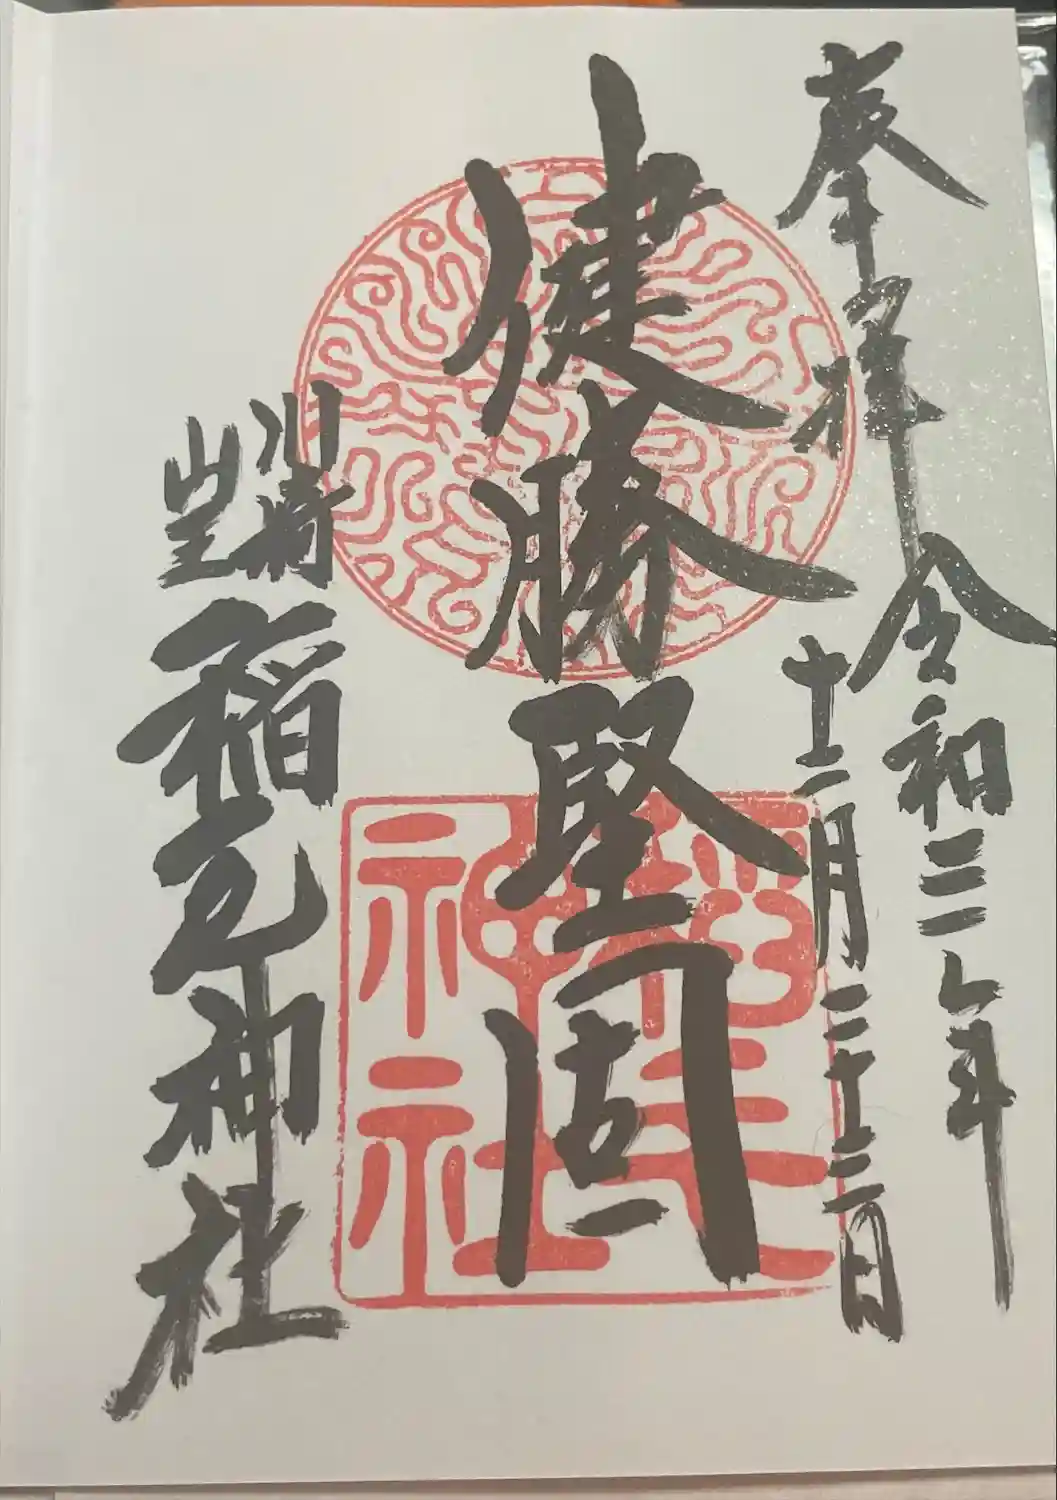 奉拝
令和三年
十二月二十二日
健勝堅固
川崎
山王
稲毛神社
稲毛
神社